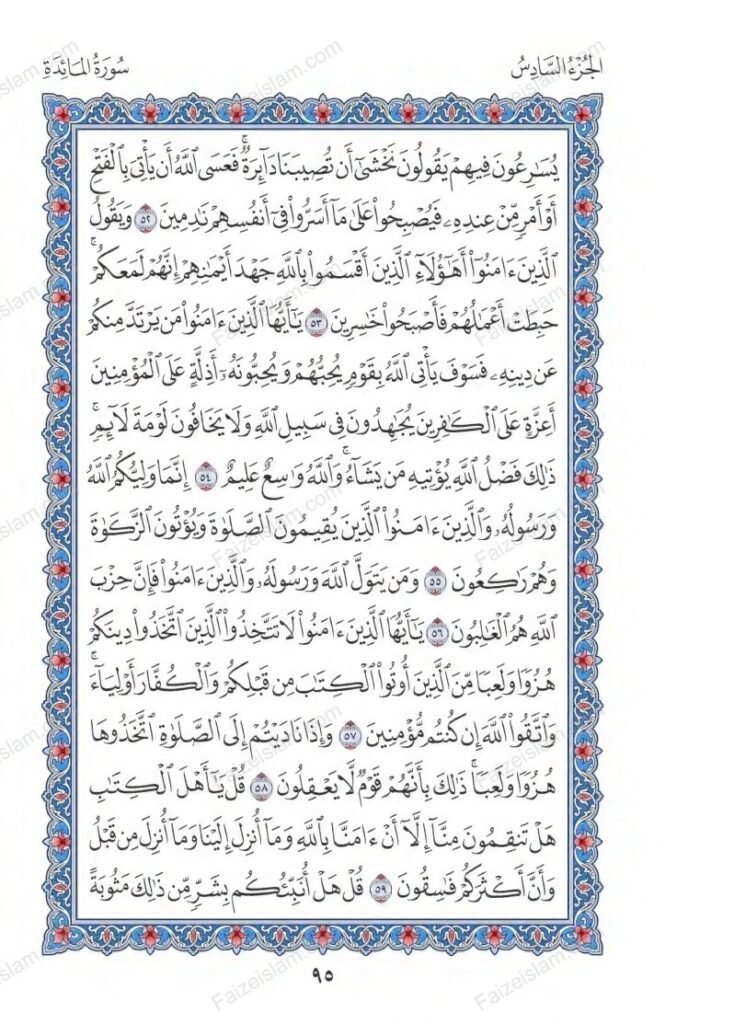 الجُزْءُ السَّادِسُ
سُورَةُ المَائِدَةِ
يُسَٰرِعُونَ فِيهِمْ يَقُولُونَ نَخْشَىٰٓ أَن تُصِيبَنَا دَآئِرَةٌ ۚ فَعَسَى ٱللَّهُ أَن يَأْتِىَ بِٱلْفَتْحِ
أَوْ أَمْرٍ مِّنْ عِندِهِۦ فَيُصْبِحُوا۟ عَلَىٰ مَآ أَسَرُّوا۟ فِىٓ أَنفُسِهِمْ نَٰدِمِينَ ٥٢ وَيَقُولُ
ٱلَّذِينَ ءَامَنُوٓا۟ أَهَٰٓؤُلَآءِ ٱلَّذِينَ أَقْسَمُوا۟ بِٱللَّهِ جَهْدَ أَيْمَٰنِهِمْ إِنَّهُمْ لَمَعَكُمْ ۚ
حَبِطَتْ أَعْمَٰلُهُمْ فَأَصْبَحُوا۟ خَٰسِرِينَ ٥٣ يَٰٓأَيُّهَا ٱلَّذِينَ ءَامَنُوا۟ مَن يَرْتَدَّ مِنكُمْ
عَن دِينِهِۦ فَسَوْفَ يَأْتِى ٱللَّهُ بِقَوْمٍ يُحِبُّهُمْ وَيُحِبُّونَهُۥٓ أَذِلَّةٍ عَلَى ٱلْمُؤْمِنِينَ
أَعِزَّةٍ عَلَى ٱلْكَٰفِرِينَ يُجَٰهِدُونَ فِى سَبِيلِ ٱللَّهِ وَلَا يَخَافُونَ لَوْمَةَ لَآئِمٍ ۚ
ذَٰلِكَ فَضْلُ ٱللَّهِ يُؤْتِيهِ مَن يَشَآءُ ۚ وَٱللَّهُ وَٰسِعٌ عَلِيمٌ ٥٤ إِنَّمَا وَلِيُّكُمُ ٱللَّهُ
وَرَسُولُهُۥ وَٱلَّذِينَ ءَامَنُوا۟ ٱلَّذِينَ يُقِيمُونَ ٱلصَّلَوٰةَ وَيُؤْتُونَ ٱلزَّكَوٰةَ
وَهُمْ رَٰكِعُونَ ٥٥ وَمَن يَتَوَلَّ ٱللَّهَ وَرَسُولَهُۥ وَٱلَّذِينَ ءَامَنُوا۟ فَإِنَّ حِزْبَ
ٱللَّهِ هُمُ ٱلْغَٰلِبُونَ ٥٦ يَٰٓأَيُّهَا ٱلَّذِينَ ءَامَنُوا۟ لَا تَتَّخِذُوا۟ ٱلَّذِينَ ٱتَّخَذُوا۟ دِينَكُمْ
هُزُوًا وَلَعِبًا مِّنَ ٱلَّذِينَ أُوتُوا۟ ٱلْكِتَٰبَ مِن قَبْلِكُمْ وَٱلْكُفَّارَ أَوْلِيَآءَ ۚ
وَٱتَّقُوا۟ ٱللَّهَ إِن كُنتُم مُّؤْمِنِينَ ٥٧ وَإِذَا نَادَيْتُمْ إِلَى ٱلصَّلَوٰةِ ٱتَّخَذُوهَا
هُزُوًا وَلَعِبًا ۚ ذَٰلِكَ بِأَنَّهُمْ قَوْمٌ لَّا يَعْقِلُونَ ٥٨ قُلْ يَٰٓأَهْلَ ٱلْكِتَٰبِ
هَلْ تَنقِمُونَ مِنَّآ إِلَّآ أَنْ ءَامَنَّا بِٱللَّهِ وَمَآ أُنزِلَ إِلَيْنَا وَمَآ أُنزِلَ مِن قَبْلُ
وَأَنَّ أَكْثَرَكُمْ فَٰسِقُونَ ٥٩ قُلْ هَلْ أُنَبِّئُكُم بِشَرٍّ مِّن ذَٰلِكَ مَثُوبَةً
٩٥
Faizeislam.com